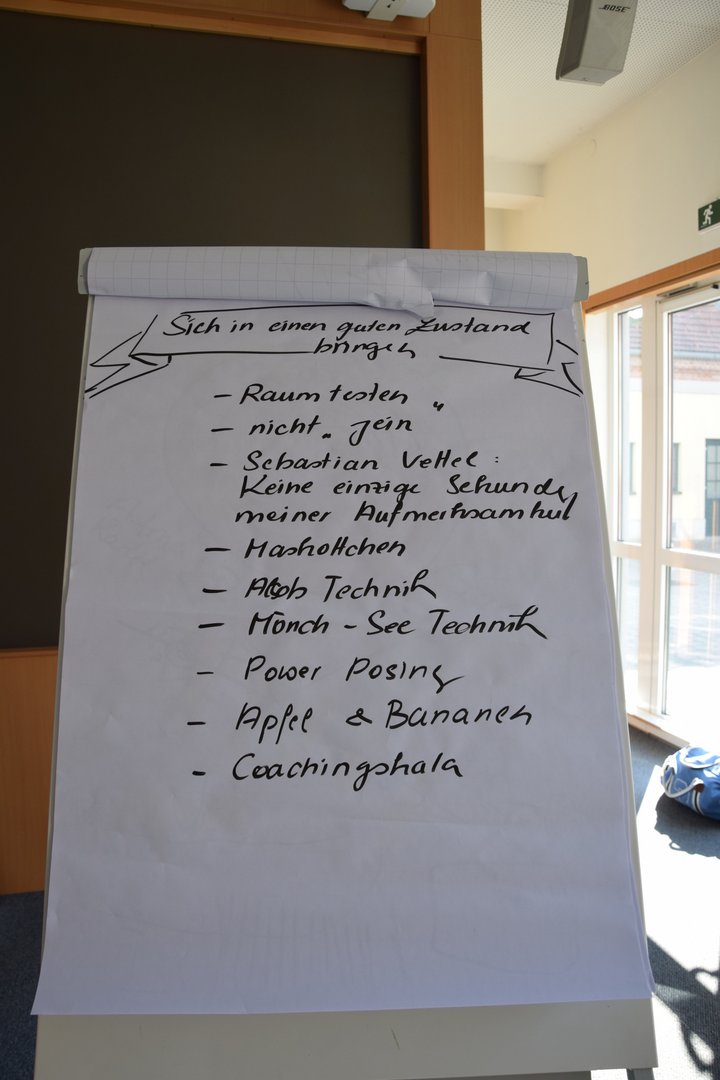 BOSE
Sich in einen guten Zustand
bringen
- Raum testen
- nicht „Jein“
- Sebastian Vettel:
Keine einzige Sekunde
meiner Aufmerksamkeit
- Maskottchen
- Technik
- Mönch - See Technik
- Power Posing
- Apfel & Bananen
- Coachingskala